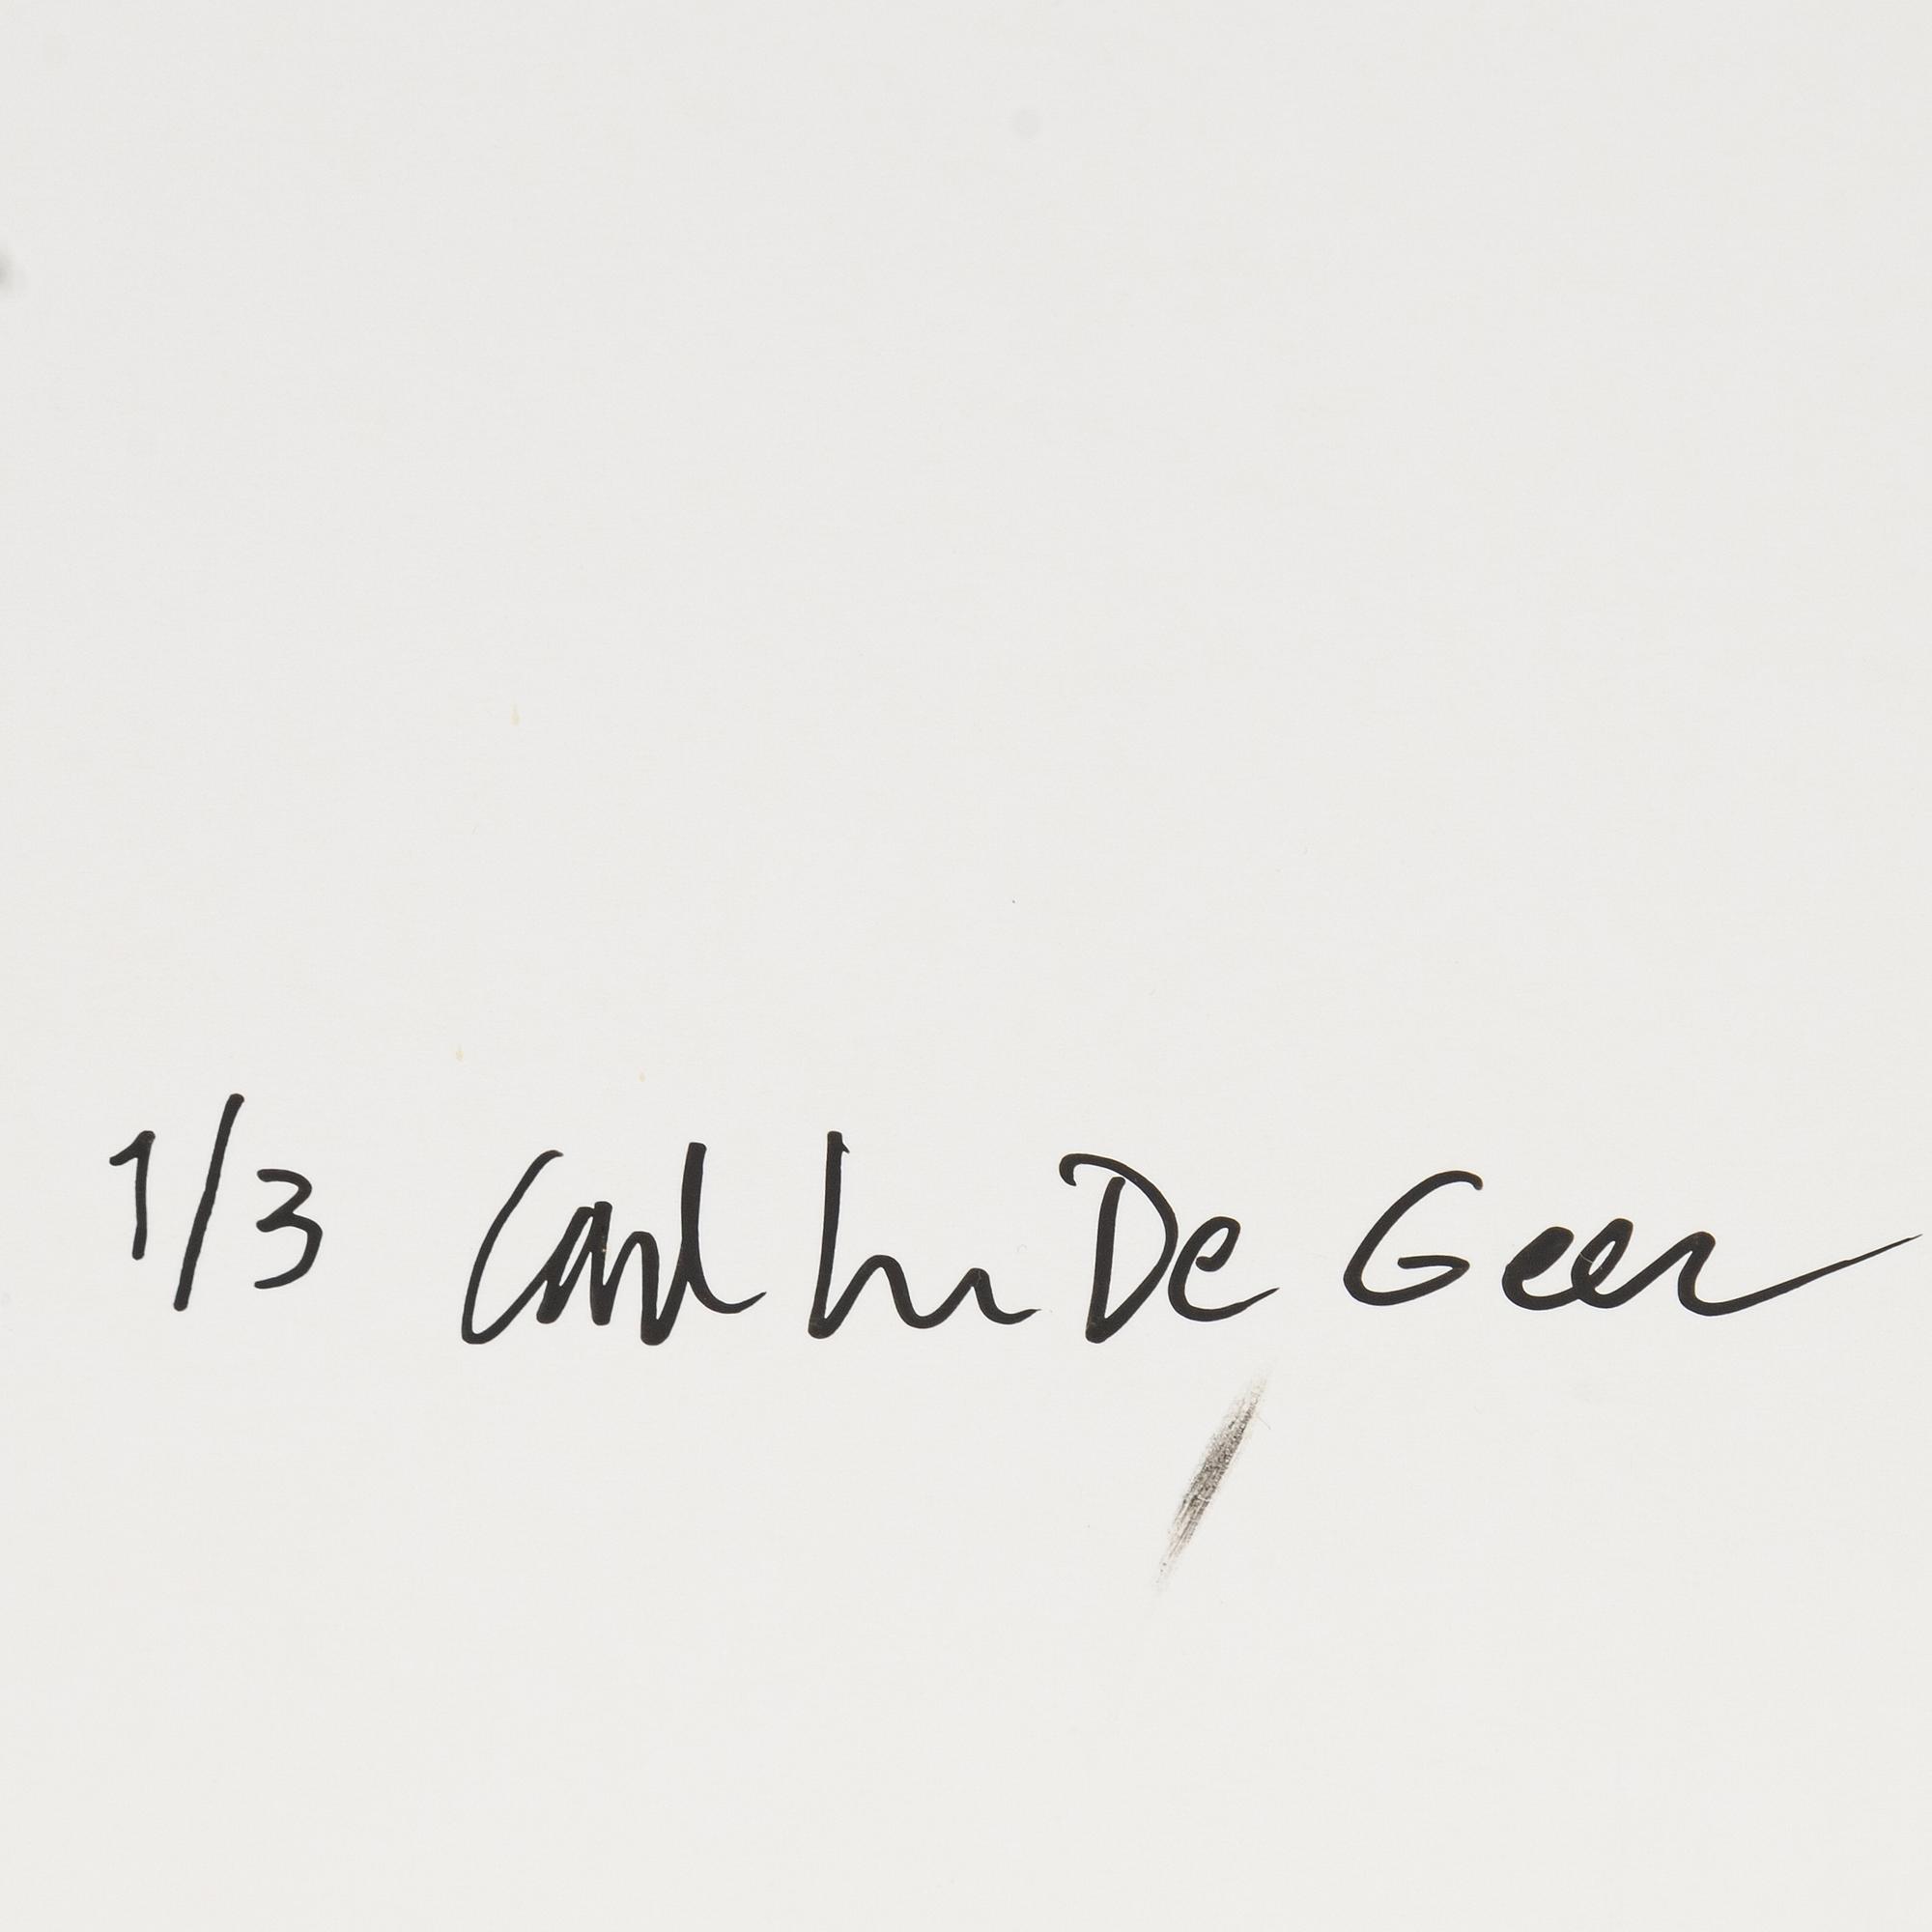 1/3 Carl Jn De Geer